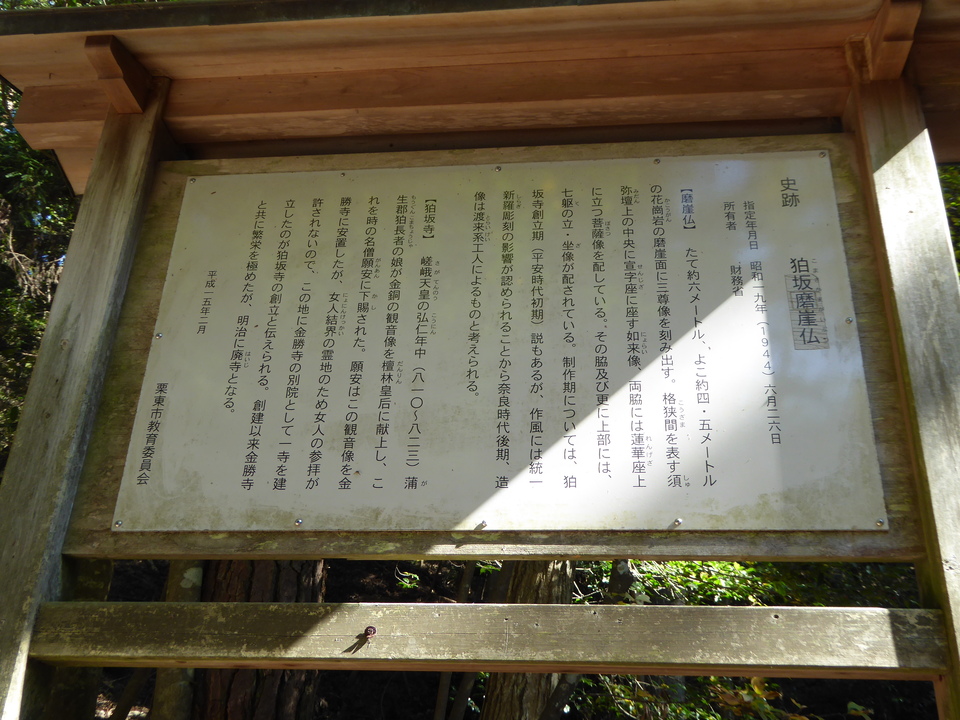 史跡
狛坂磨崖仏
指定年月日 昭和一九年（1944）六月二六日
所有者 財務省
【磨崖仏】 たて約六メートル、よこ約四・五メートル
の花崗岩の磨崖面に三尊像を刻み出す。格狭間を表す須
弥壇上の中央に宣字座に座す如来像、両脇には蓮華座上
に立つ菩薩像を配している。その脇及び更に上部には、
七躯の立・坐像が配されている。制作期については、狛
坂寺創立期（平安時代初期）説もあるが、作風には統一
新羅彫刻の影響が認められることから奈良時代後期、造
像は渡来系工人によるものと考えられる。
【狛坂寺】 嵯峨天皇の弘仁年中（八一〇～八二三）蒲
生郡狛長者の娘が金銅の観音像を檀林皇后に献上し、こ
れを時の名僧願安に下賜された。願安はこの観音像を金
勝寺に安置したが、女人結界の霊地のため女人の参拝が
許されないので、この地に金勝寺の別院として一寺を建
立したのが狛坂寺の創立と伝えられる。創建以来金勝寺
と共に繁栄を極めたが、明治に廃寺となる。
平成一五年二月
栗東市教育委員会